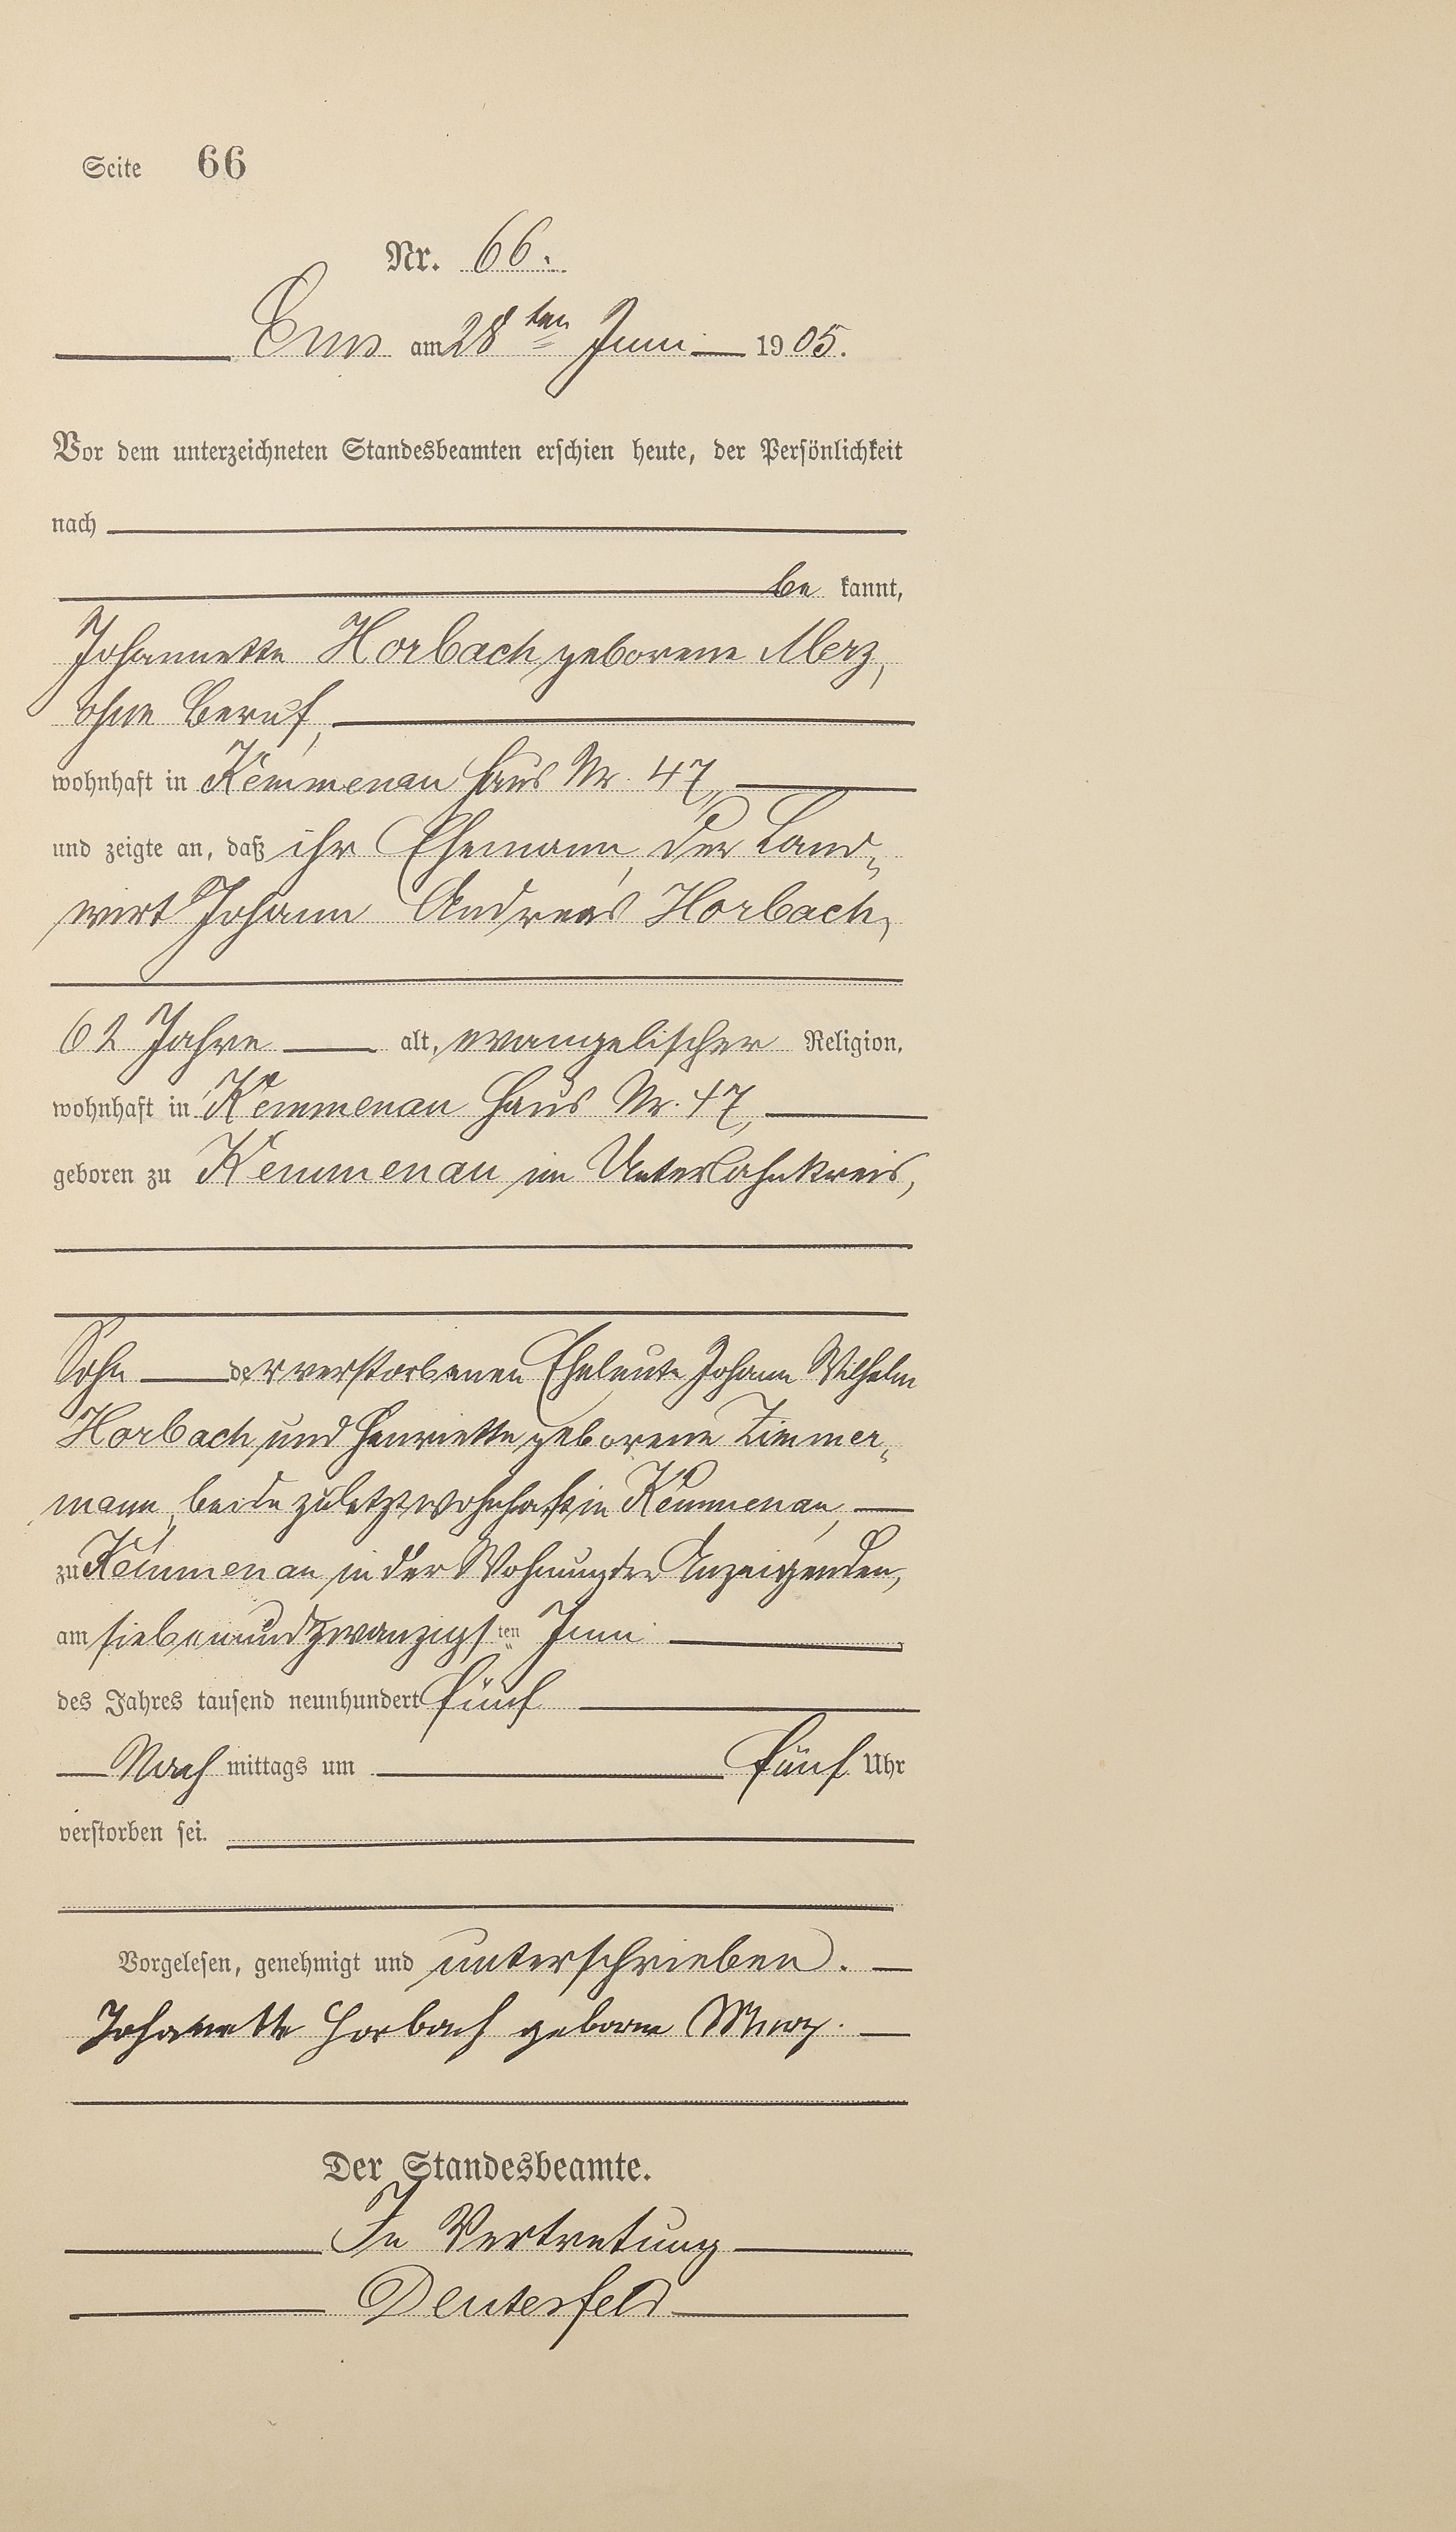 Seite 66
Nr. 66.
Ems am 28ten Juni 1905.
Vor dem unterzeichneten Standesbeamten erschien heute, der Persönlichkeit
nach
be kannt,
Johannette Horbach geborene Merz,
ohne Beruf,
wohnhaft in Kemmenau Haus Nr. 47,
und zeigte an, daß ihr Ehemann, der Land-
wirt Johann Andreas Horbach,
62 Jahre alt, evangelischer Religion,
wohnhaft in Kemmenau Haus Nr. 47,
geboren zu Kemmenau im Unterlahnkreis,
Sohn der verstorbenen Eheleute Johann Wilhelm
Horbach und Henriette geborene Zimmer-
mann, beide zuletzt wohnhaft in Kemmenau,
zu Kemmenau in der Wohnung der Anzeigenden,
am siebenundzwanzigsten Juni
des Jahres tausend neunhundert fünf
Nach mittags um fünf Uhr
verstorben sei.
Vorgelesen, genehmigt und unterschrieben.
Johanette Horbach geborne Merz.
Der Standesbeamte.
In Vertretung
Deuterfeld